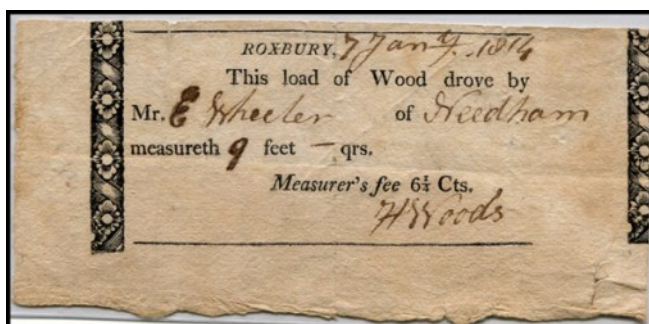 ROXBURY, 7 Jany. 1814
This load of Wood drove by
Mr. E Wheeler of Needham
measureth 9 feet — qrs.
Measurer's fee 6¼ Cts.
H Woods